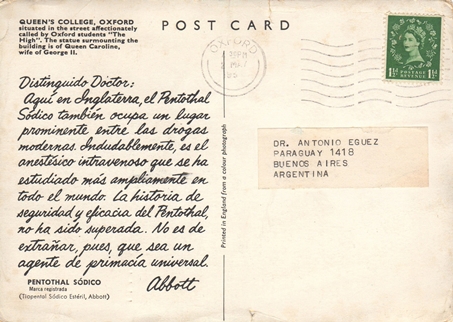 QUEEN'S COLLEGE, OXFORD
situated in the street affectionately
called by Oxford students "The
High". The statue surmounting the
building is of Queen Caroline,
wife of George II.
POST CARD
OXFORD
MAY
POSTAGE
REVENUE
1½D
1½D
Distinguido Doctor:
Aquí en Inglaterra, el Pentothal
Sódico también ocupa un lugar
prominente entre las drogas
modernas. Indudablemente, es el
anestésico intravenoso que se ha
estudiado más ampliamente en
todo el mundo. La historia de
seguridad y eficacia del Pentothal,
no ha sido superada. No es de
extrañar, pues, que sea un
agente de primacía universal.
Abbott
PENTOTHAL SÓDICO
Marca registrada
(Tiopental Sódico Estéril, Abbott)
Printed in England from a colour photograph
DR. ANTONIO EGUEZ
PARAGUAY 1418
BUENOS AIRES
ARGENTINA